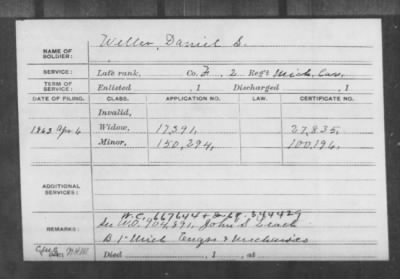 NAME OF SOLDIER: Weller, Daniel S.
SERVICE: Late rank, Co. F, 2 Reg't Mich. Cav.
TERM OF SERVICE: Enlisted , 1 Discharged , 1
DATE OF FILING. CLASS. APPLICATION NO. LAW. CERTIFICATE NO.
Invalid,
1863 Apr. 6 Widow, 17391, 27,835,
Minor, 150,294, 100,196,
ADDITIONAL SERVICES:
W.C. 667644
REMARKS: In W.O. 904,891, John S.
B 1" Mich Engrs & Mechanics
Died , 1 , at